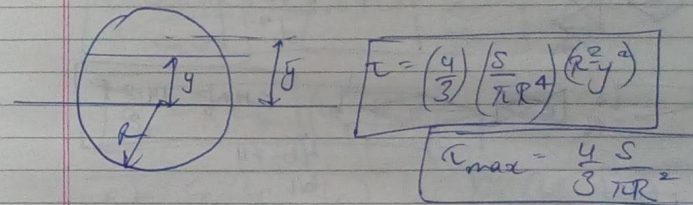 y
ȳ
R
τ = (4/3) (S/πR⁴) (R²-y²)
τmax = 4/3 S/πR²